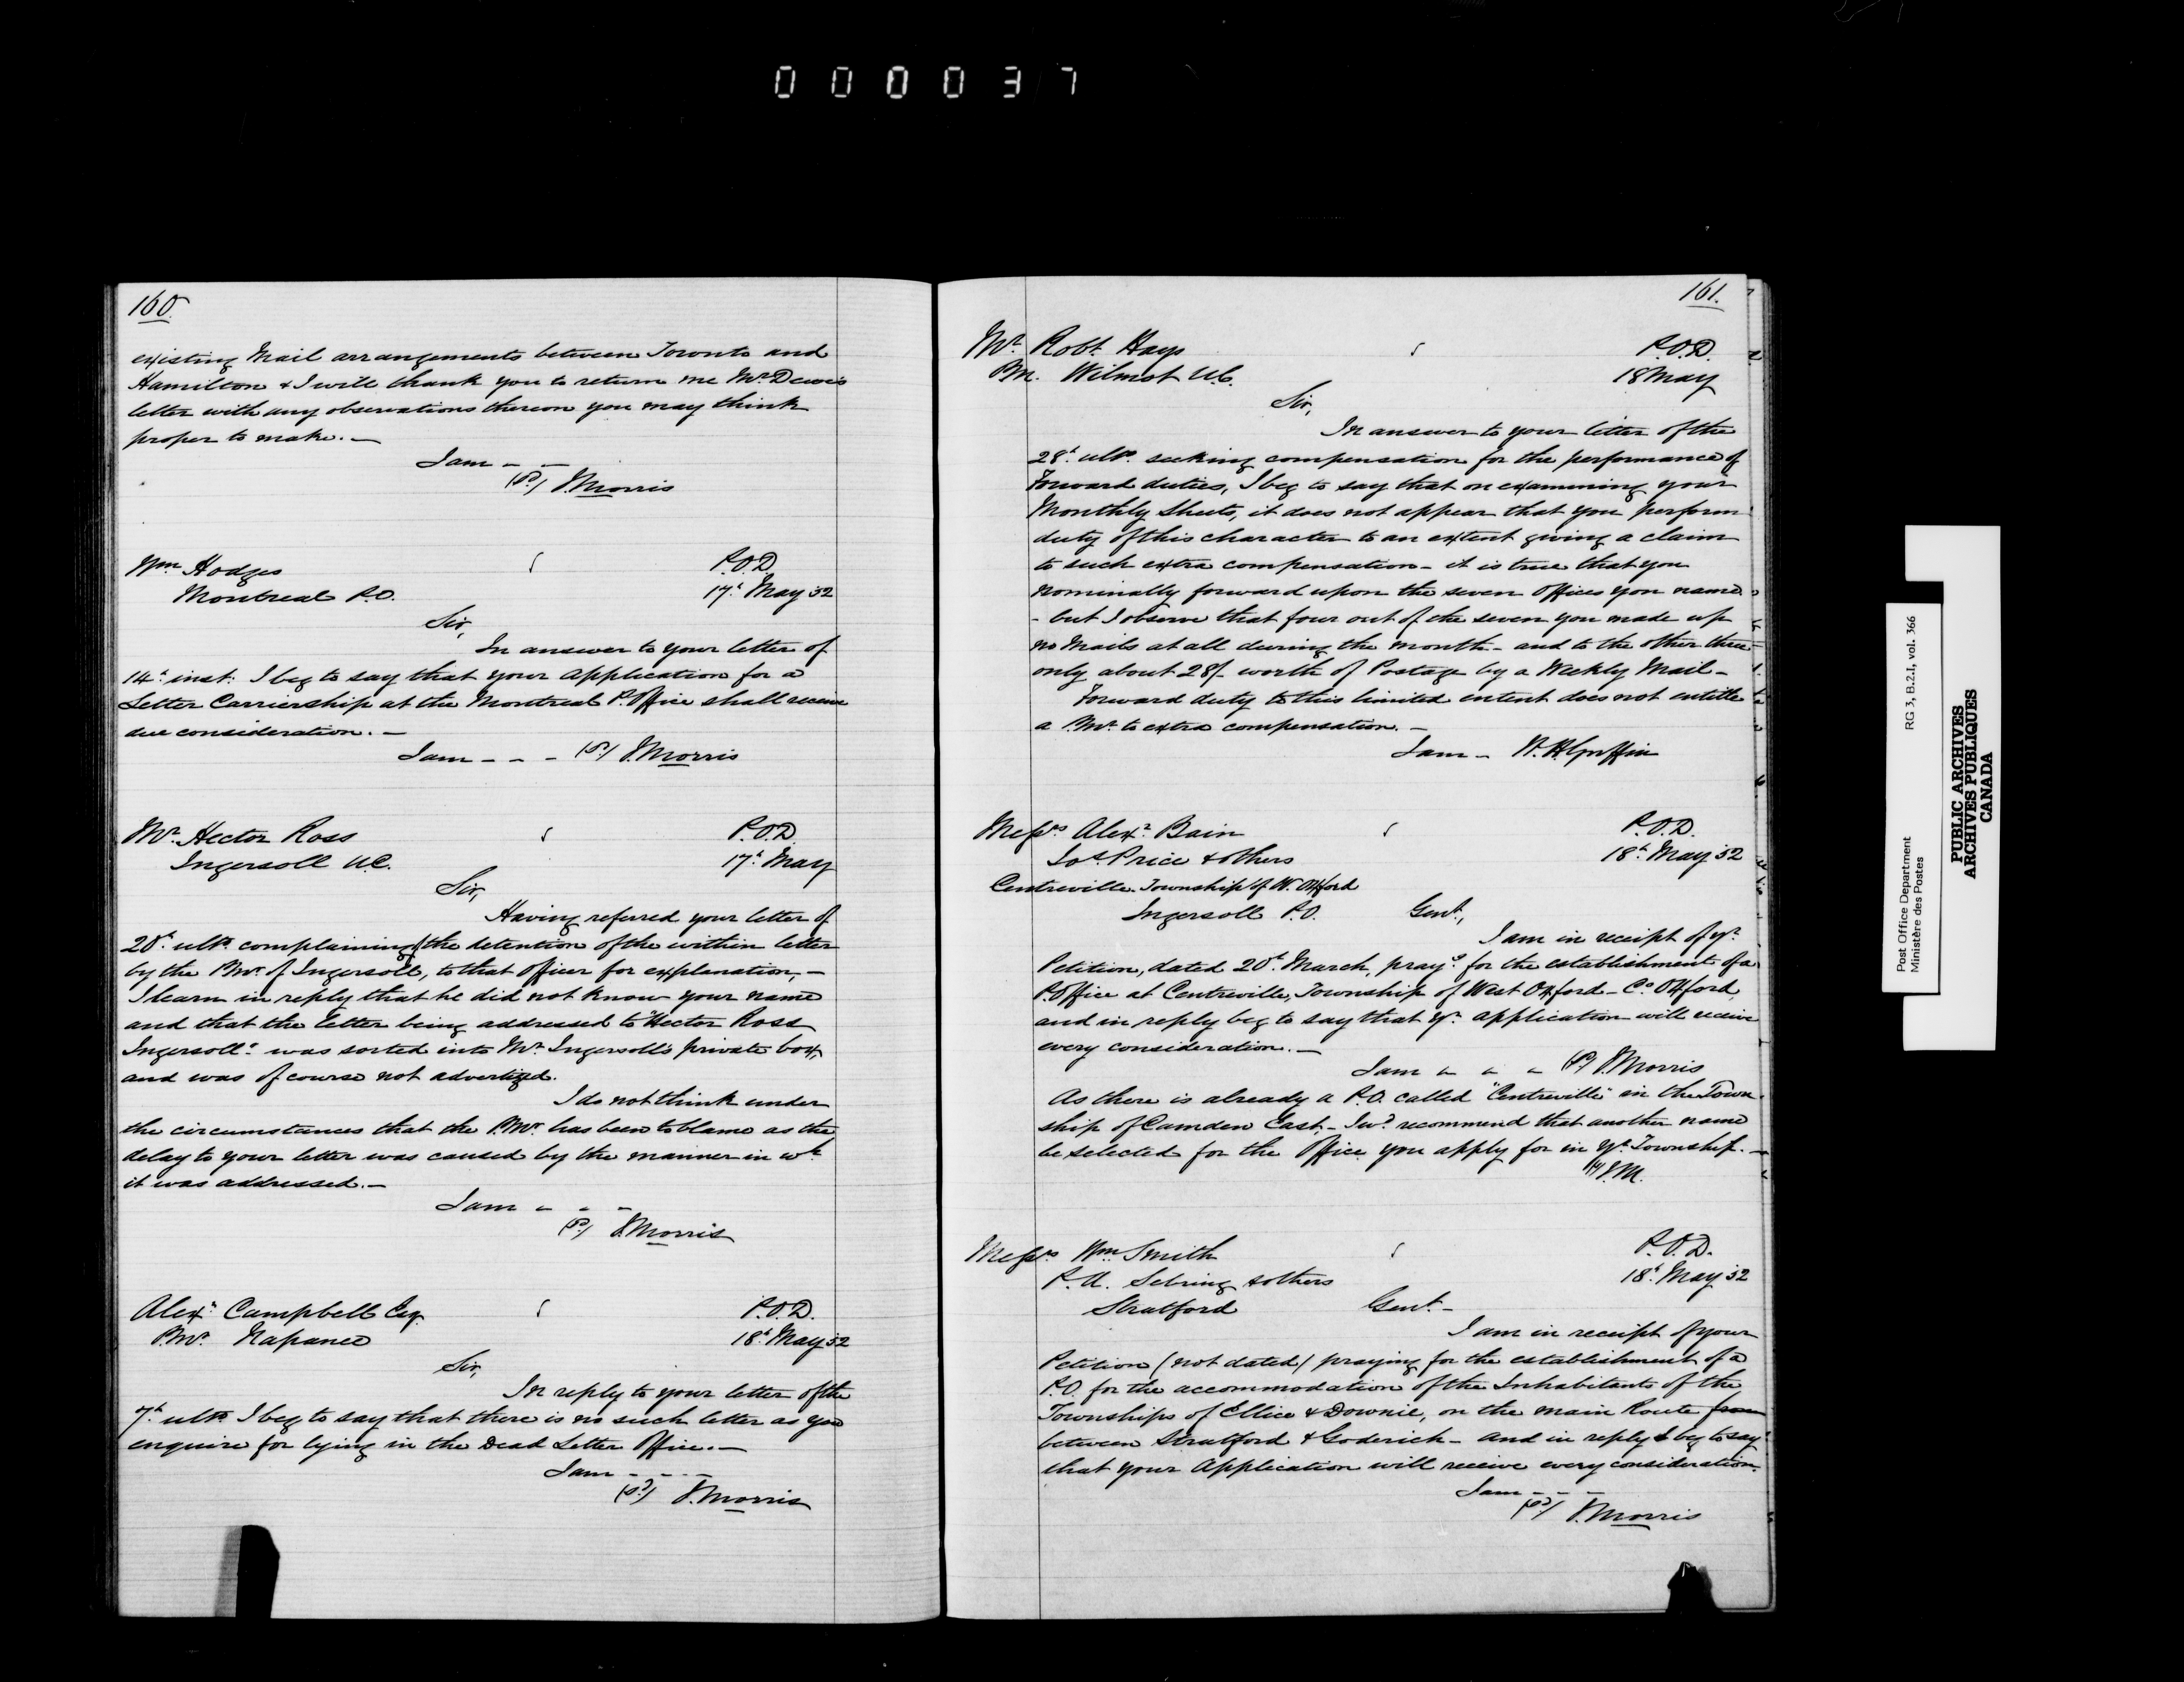 000037
160.
existing Mail arrangements between Toronto and
Hamilton & I will thank you to return me Mr. Dewe's
letter with any observations thereon you may think
proper to make. —
I am — —
(Sd.) J. Morris
Wm. Hodges
P.O.D.
Montreal P.O.
17th May 52
Sir,
In answer to your letter of
14th inst: I beg to say that your application for a
Letter Carriership at the Montreal P. Office shall receive
due consideration. —
I am - - - (Sd.) J. Morris
Mr. Hector Ross
P.O.D
Ingersoll U.C.
17th May
Sir,
Having referred your letter of
20th ulto. complaining of the detention of the within letter
by the P.Mr. of Ingersoll, to that officer for explanation, —
I learn in reply that he did not know your name
and that the letter being addressed to "Hector Ross
Ingersoll" was sorted into Mr. Ingersoll's private box,
and was of course not advertized.
I do not think under
the circumstances that the P.Mr. has been to blame as the
delay to your letter was caused by the manner in wh.
it was addressed. —
I am - - -
(Sd.) J. Morris
Alexr. Campbell Esq.
P.O.D.
P.Mr. Napanee
18th May 52
Sir,
In reply to your letter of the
7th ulto. I beg to say that there is no such letter as you
enquire for lying in the Dead Letter Office. —
I am - - - -
(Sd.) J. Morris
161.
Mr. Robt. Hays
P.O.D.
PM. Wilmot U.C.
18 May
Sir,
In answer to your letter of the
28th ulto. seeking compensation for the performance of
Forward duties, I beg to say that on examining your
Monthly Sheets, it does not appear that you perform
duty of this character to an extent giving a claim
to such extra compensation - it is true that you
nominally forward upon the seven Offices you name
- but I observe that four out of the seven you made up
no Mails at all during the month - and to the other three
only about 28/- worth of Postage by a Weekly Mail -
Forward duty to this limited extent does not entitle
a P.Mr. to extra compensation. —
I am - W. H. Griffin
Messrs Alexr. Bain
P.O.D.
Jos. Price & others
18th May 52
Centreville. Township of W. Oxford
Ingersoll P.O.
Gent.,
I am in receipt of yr.
Petition, dated 20th March, prayg. for the establishment of a
P. Office at Centreville, Township of West Oxford - Co. Oxford,
and in reply beg to say that yr. application will receive
every consideration. —
I am - - - (Sd.) J. Morris
As there is already a P.O. called "Centreville" in the Town-
ship of Camden East, - I wd. recommend that another name
be selected for the Office you apply for in yr. Township. —
J.M.
Messrs. Wm. Smith
P.O.D.
P. A. Sebring & others
18th May 52
Stratford
Gent. -
I am in receipt of your
Petition (not dated) praying for the establishment of a
P.O. for the accommodation of the Inhabitants of the
Townships of Ellice & Downie, on the main Route from
between Stratford & Goderich - and in reply I beg to say
that your Application will receive every consideration.
I am - - -
(Sd.) J. Morris
Post Office Department
Ministère des Postes
RG 3, B.2.I, vol. 366
PUBLIC ARCHIVES
ARCHIVES PUBLIQUES
CANADA